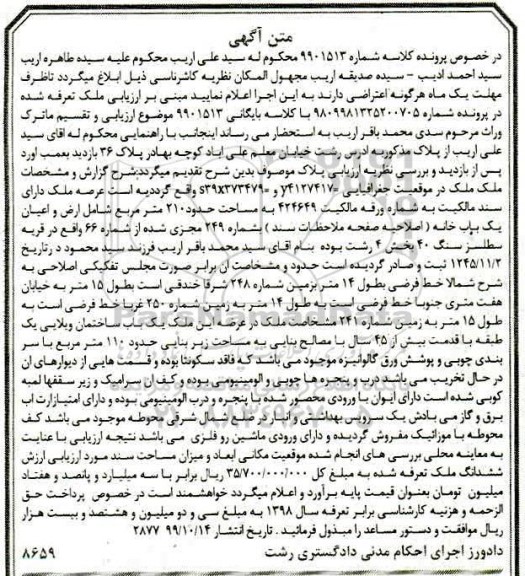 متن آگهی
در خصوص پرونده کلاسه شماره ۹۹۰۱۵۱۳ محکوم له سید علی اریب محکوم علیه سیده طاهره اریب
سید احمد ادیب - سیده صدیقه اریب مجهول المکان نظریه کارشناسی ذیل ابلاغ میگردد تا ظرف
مهلت یک ماه هرگونه اعتراضی دارند به این اجرا اعلام نمایید مبنی بر ارزیابی ملک تعرفه شده
در پرونده شماره ۹۸۰۹۹۸۱۳۳۵۲۰۰۷۰۵ با کلاسه بایگانی ۹۹۰۱۵۱۳ موضوع ارزیابی و تقسیم ماترک
وراث مرحوم سدی محمد باقر اریب به استحضار می رساند اینجانب با راهنمایی محکوم له اقای سید
علی اریب از پلاک مذکور به ادرس رشت خیابان معلم علی اباد کوچه بهادر پلاک ۳۶ بازدید بعمب اورد
پس از بازدید و بررسی نظریه ارزیابی پلاک موصوف بدین شرح تقدیم میگردد:شرح گزارش و مشخصات
ملک ملک در موقعیت جغرافیایی y۴۱۲۷۴۱۷۰ و s۳۹x۳۷۳۴۷۹۰ واقع گردیده است عرصه ملک دارای
سند مالکیت به شماره ورقه مالکیت ۴۲۴۶۴۹ به مساحت حدود ۲۱۰ متر مربع شامل ارض و اعیان
یک باب خانه ( اصلاحیه صفحه ملاحظات سند ) بشماره ۲۴۹ مجزی شده از شماره ۶۶ واقع در قریه
سطلسر سنگ ۴۰ بخش ۴ رشت بوده بنام اقای سید محمد باقر اریب فرزند سید محمود د رتاریخ
۱۲۴۵/۱۱/۲ ثبت و صادر گردیده است حدود و مشخصات آن برابر صورت مجلس تفکیکی اصلاحی به
شرح شمالا خط فرضی بطول ۱۴ متر بزمین شماره ۲۴۸ شرقا خندقی است بطول ۱۵ متر به خیابان
هفت متری جنوبا خط فرضی است به طول ۱۴ متر به زمین شماره ۲۵۰ غربا خط فرضی است به
طول ۱۵ متر به زمین شماره ۲۴۱ مشخصات ملک در عرصه این ملک یک باب ساختمان ویلایی یک
طبقه با قدمت بیش از ۴۵ سال با مصالح بنایی به مساحت زیر بنایی حدود ۱۱۰ متر مربع با سر
بندی چوبی و پوشش ورق گالوانیزه موجود می باشد که فاقد سکونتا بوده و قسمت هایی از دیوارهای ان
در حال تخریب می باشد درب و پنجره ها چوبی و الومینیومی بوده و کف ان سرامیک و زیر سقفها لمبه
کوبی شده است دارای ایوان با ورودی محصور شده با پنجره و درب الومینیومی بوده و دارای امتیازات اب
برق و گاز می بادش یک سرویس بهداشتی و انبار در ضلع شمال شرقی محوطه موجود می باشد کف
محوطه با موزائیک مفروش گردیده و دارای ورودی ماشین رو فلزی می باشد نتیجه ارزیابی با عنایت
به معاینه محلی بررسی های انجام شده موقعیت مکانی ابعاد و میزان مساحت سند مورد ارزیابی ارزش
ششدانگ ملک تعرفه شده به مبلغ کل ۳۵/۷۰۰/۰۰۰/۰۰۰ ریال برابر با سه میلیارد و پانصد و هفتاد
میلیون تومان بعنوان قیمت پایه برآورد و اعلام میگردد خواهشمند است در خصوص پرداخت حق
الزحمه و هزنیه کارشناسی برابر تعرفه سال ۱۳۹۸ به مبلغ سی و دو میلیون و هشتصد و بیست هزار
ریال موافقت و دستور مساعد را مبذول فرمائید . تاریخ انتشار ۹۹/۱۰/۱۴ ۲۸۷۷
دادورز اجرای احکام مدنی دادگستری رشت ۸۶۵۹